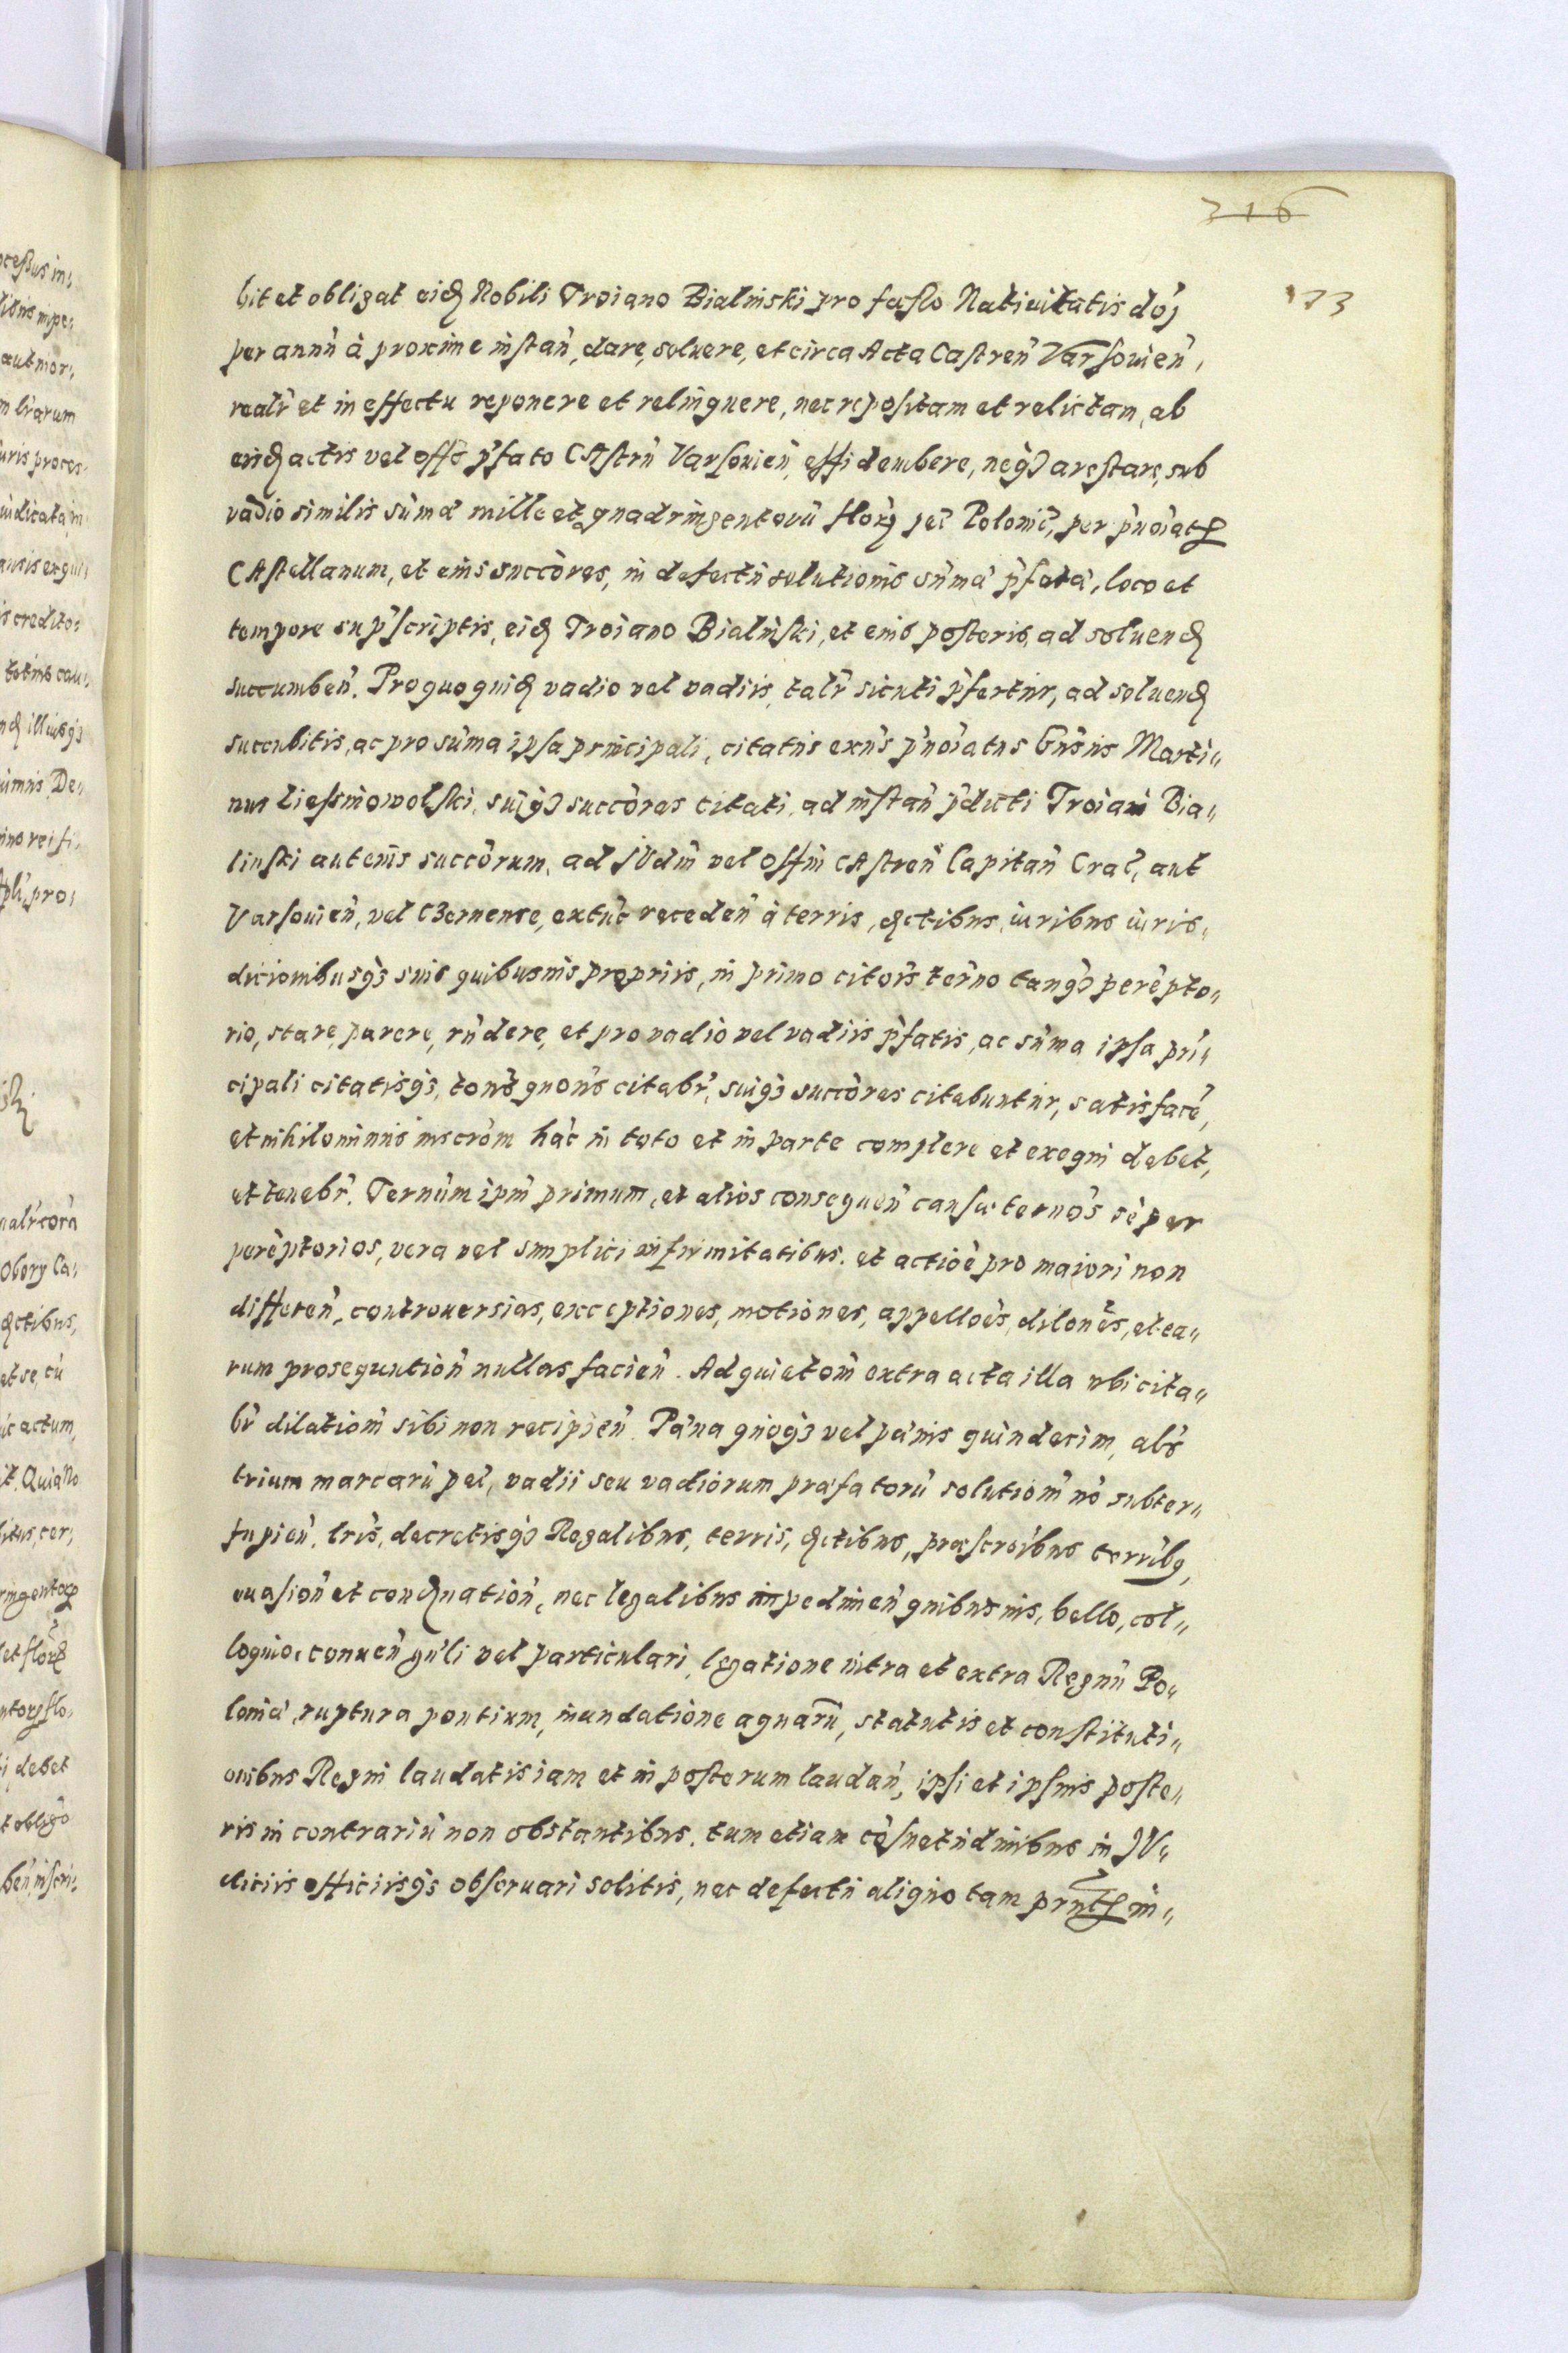 216
173
bit et obligat eid Nobili Troiano Bialinski pro festo Natiuitatis dōj
per annū à proxime instan̄, dare, soluere, et circa Acta Castren̄ Varsouien̄,
realr̄ et in effectu reponere et relinquere, nec repositam et relictam, ab
eisd actis vel offō p̄fato CAstrn̄ Varsouien̄, effi dembere, neq́ȝ arestare, sub
vadio similis sum̄æ mille et quadringentorū flor̄ pec̄ Polonic̄, per p̄noīat
CAstellanum, et eius succōres, in defectu solutionis sum̄æ p̄fatæ, loco et
tempore sup̄scriptis, eid Troiano Bialinski, et eius posteris, ad soluend
succumben̄. Pro quo quid vadio vel vadiis, talr̄ sicuti p̄fertur, ad soluend
succubitis, ac pro sum̄a ipsa principali, citatus exn̄s p̄noīatus Gn̄sus Marti„
nus Liessniowolski, suiq́ȝ succōres citati, ad instan̄ p̄dicti Troiani Bia„
linski aut eius succōrum, ad JVdm̄ vel Offm̄ CAstren̄ Capitan̄ Crac̄, aut
Varsouien̄, vel Czernense, extūc receden̄ à terris, dctibus, iuribus iuris„
dicionibusq́ȝ suis quibusuis propriis, in primo citōis ter̄no tanq́ȝ perēpto„
rio, stare, parere, rn̄dere, et pro vadio vel vadiis p̄fatis, ac sum̄a ipsa prī„
cipali citatisq́ȝ, totiēs quoties citabr̄, suiq́ȝ succōres citabuntur, satisfacē,
et nihilominus inscrōm hāc in toto et in parte complere et exequi debet,
et tenebr̄. Ternūm ipm̄ primum, et alios consequen̄ causæ ternōs sēper
perēptorios, vera vel simplici infirmitatibus. et actiōe pro maiori non
differen̄, controuersias, exceptiones, motiones, appellōes, dilonēs, et ea„
rum prosequution̄ nullas facien̄. Ad quietom̄ extra acta illa ubi cita„
br̄ dilatiom̄ sibi non recipien̄. Pæna quoq́ȝ vel pænis quindecim, al̄s
trium marcarū pec̄, vadii seu vadiorum præfatorū solutiom̄ nō subter„
fugien̄. lrīs, decretisq́ȝ Regalibus, terris, dctibus, præscroībus terrib,
euasion̄ et condnation̄, nec legalibus impedimen̄ quibusuis, bello, col„
loquio, conuen̄ gn̄li vel particulari, legatione intra et extra Regnū Po„
loniæ, ruptura pontium, inundatione aquarū, statutis et constituti„
onibus Regni laudatis iam et in posterum laudan̄, ipsi et ipsius poste„
ris in contrariū non obstantibus. tum etiam cōsuetudinibus in JV„
diciis officiisq́ȝ obseruari solitis, nec defectu aliquo tam prn̄t in„